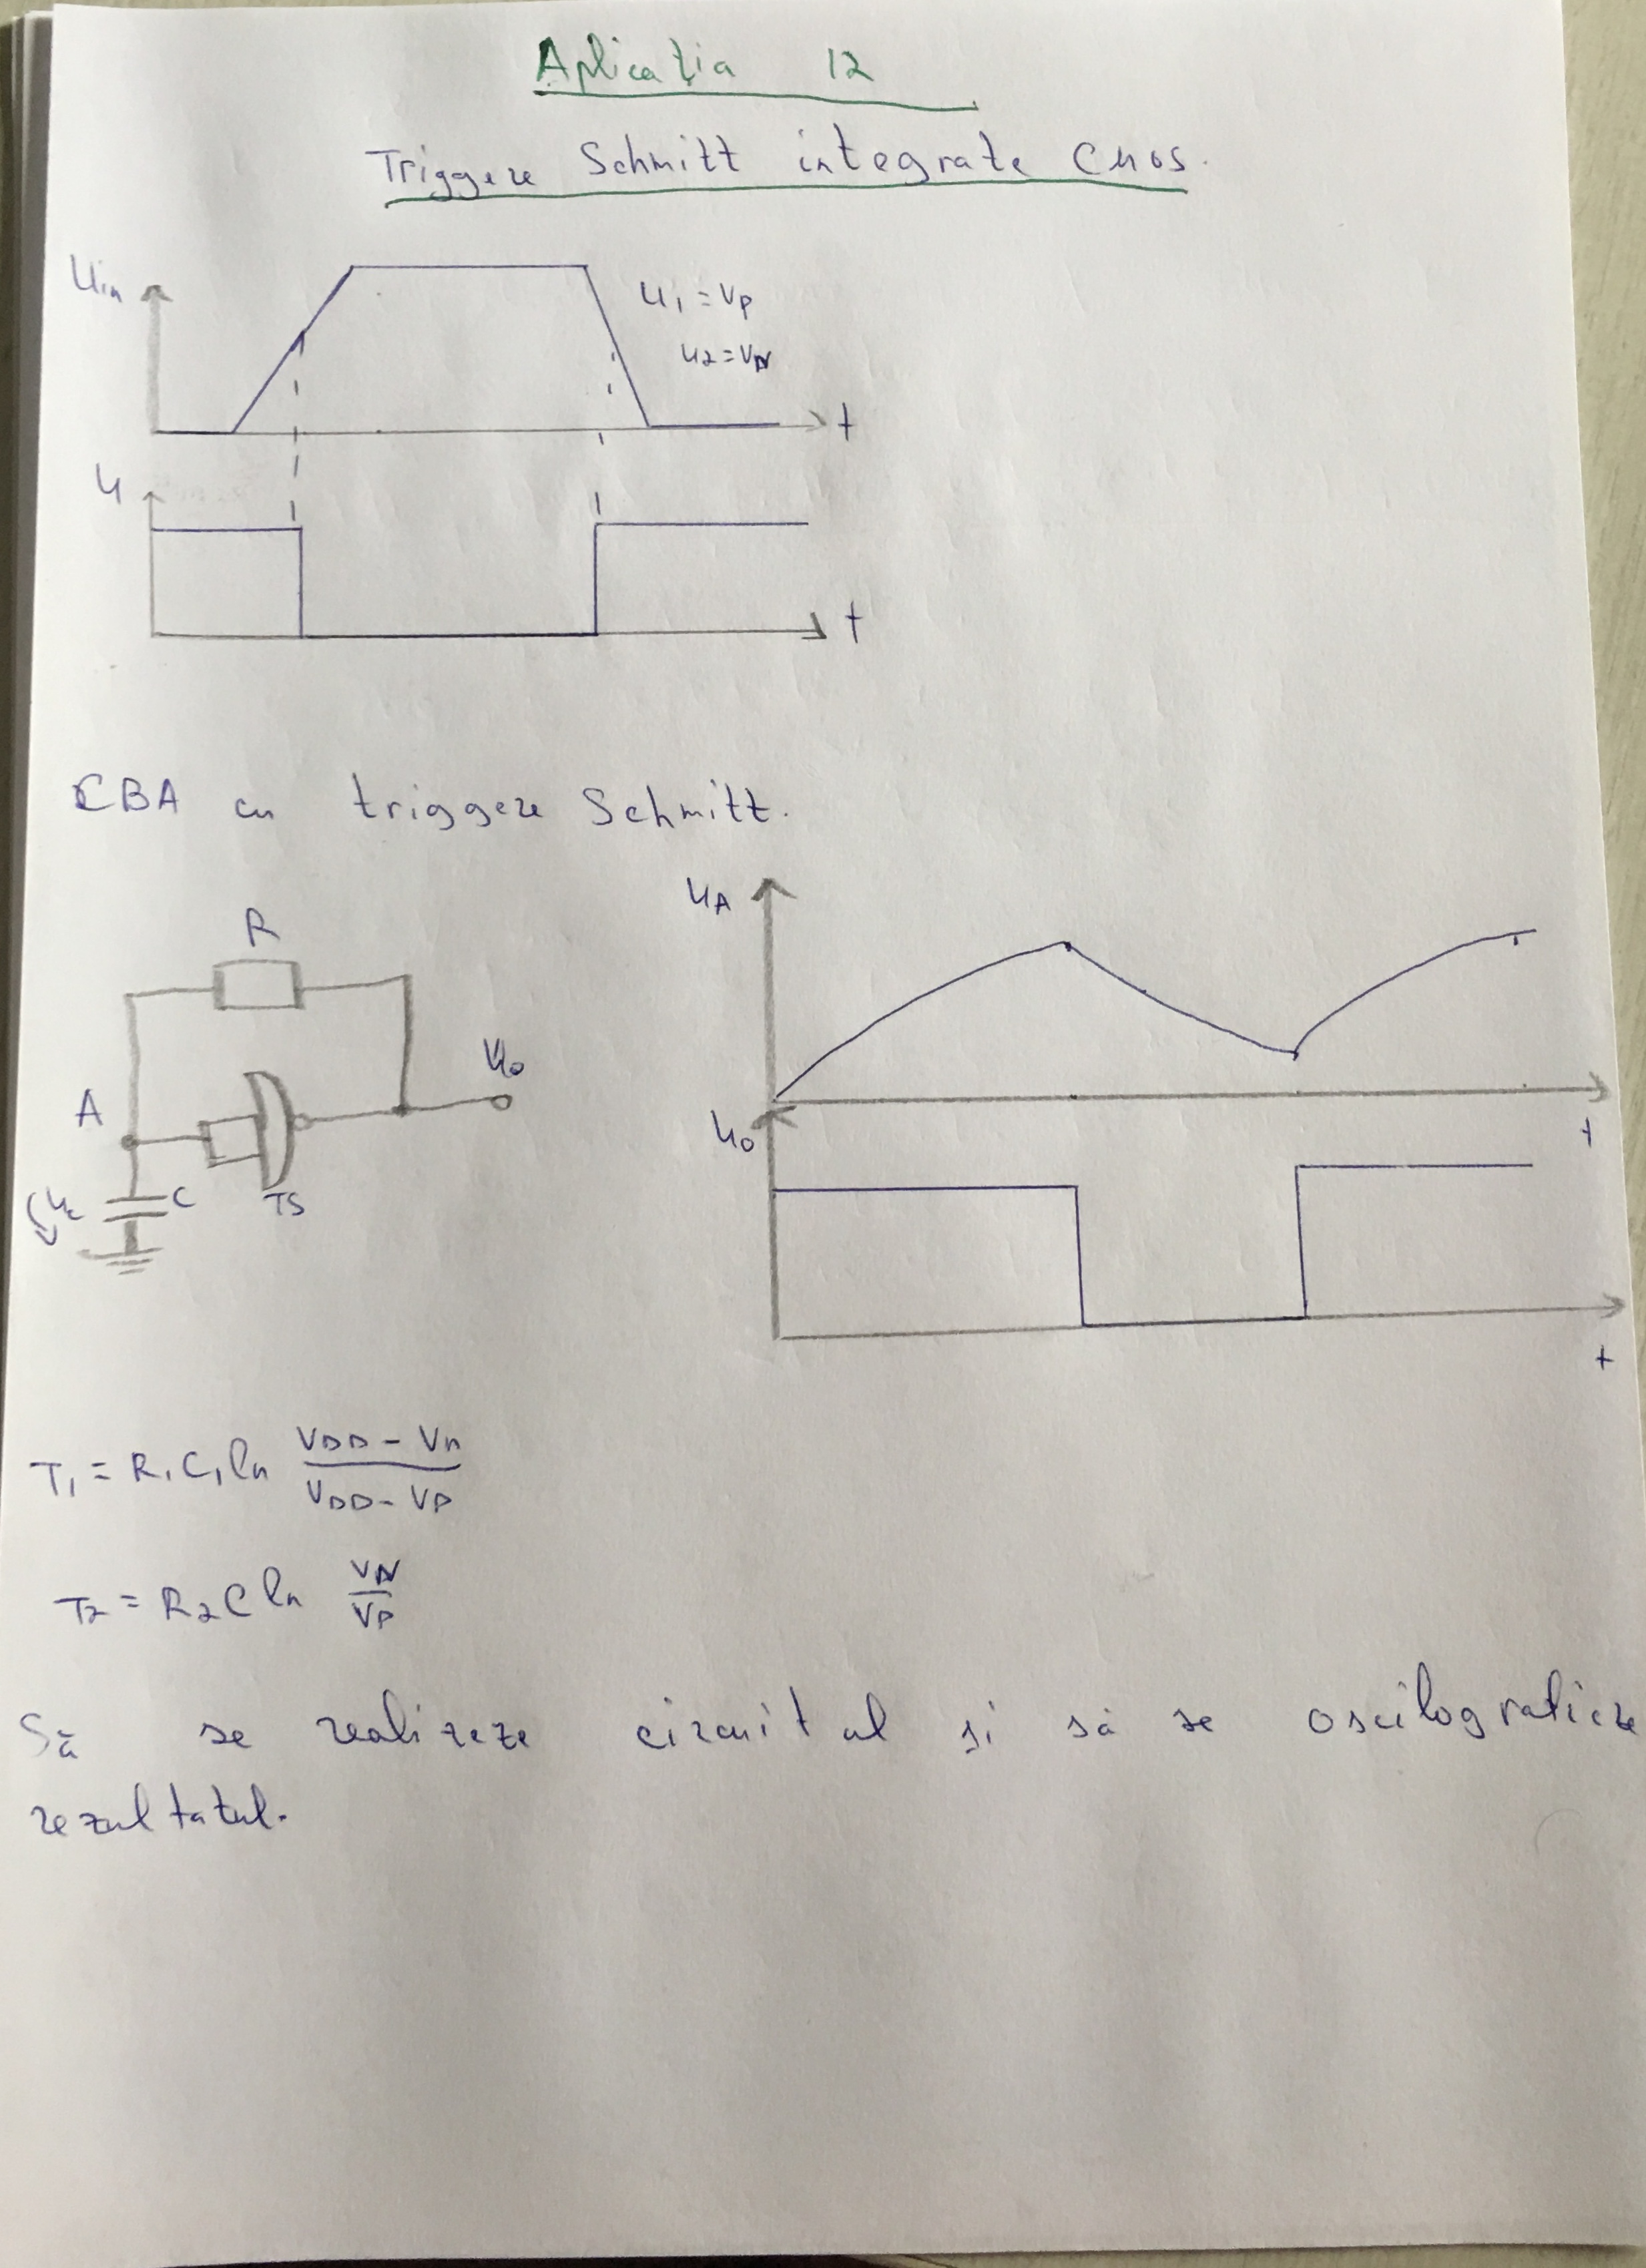 Aplicația 12
Triggere Schmitt integrate CMOS.
Uin
U1 = VP
U2 = VN
t
U
t
CBA cu triggere Schmitt.
UA
R
A
U0
t
U0
Uc
C
TS
t
T1 = R1C1 ln (VDD - VN)/(VDD - VP)
T2 = R2C ln VN/VP
Să se realizeze circuitul și să se oscilografieze
rezultatul.